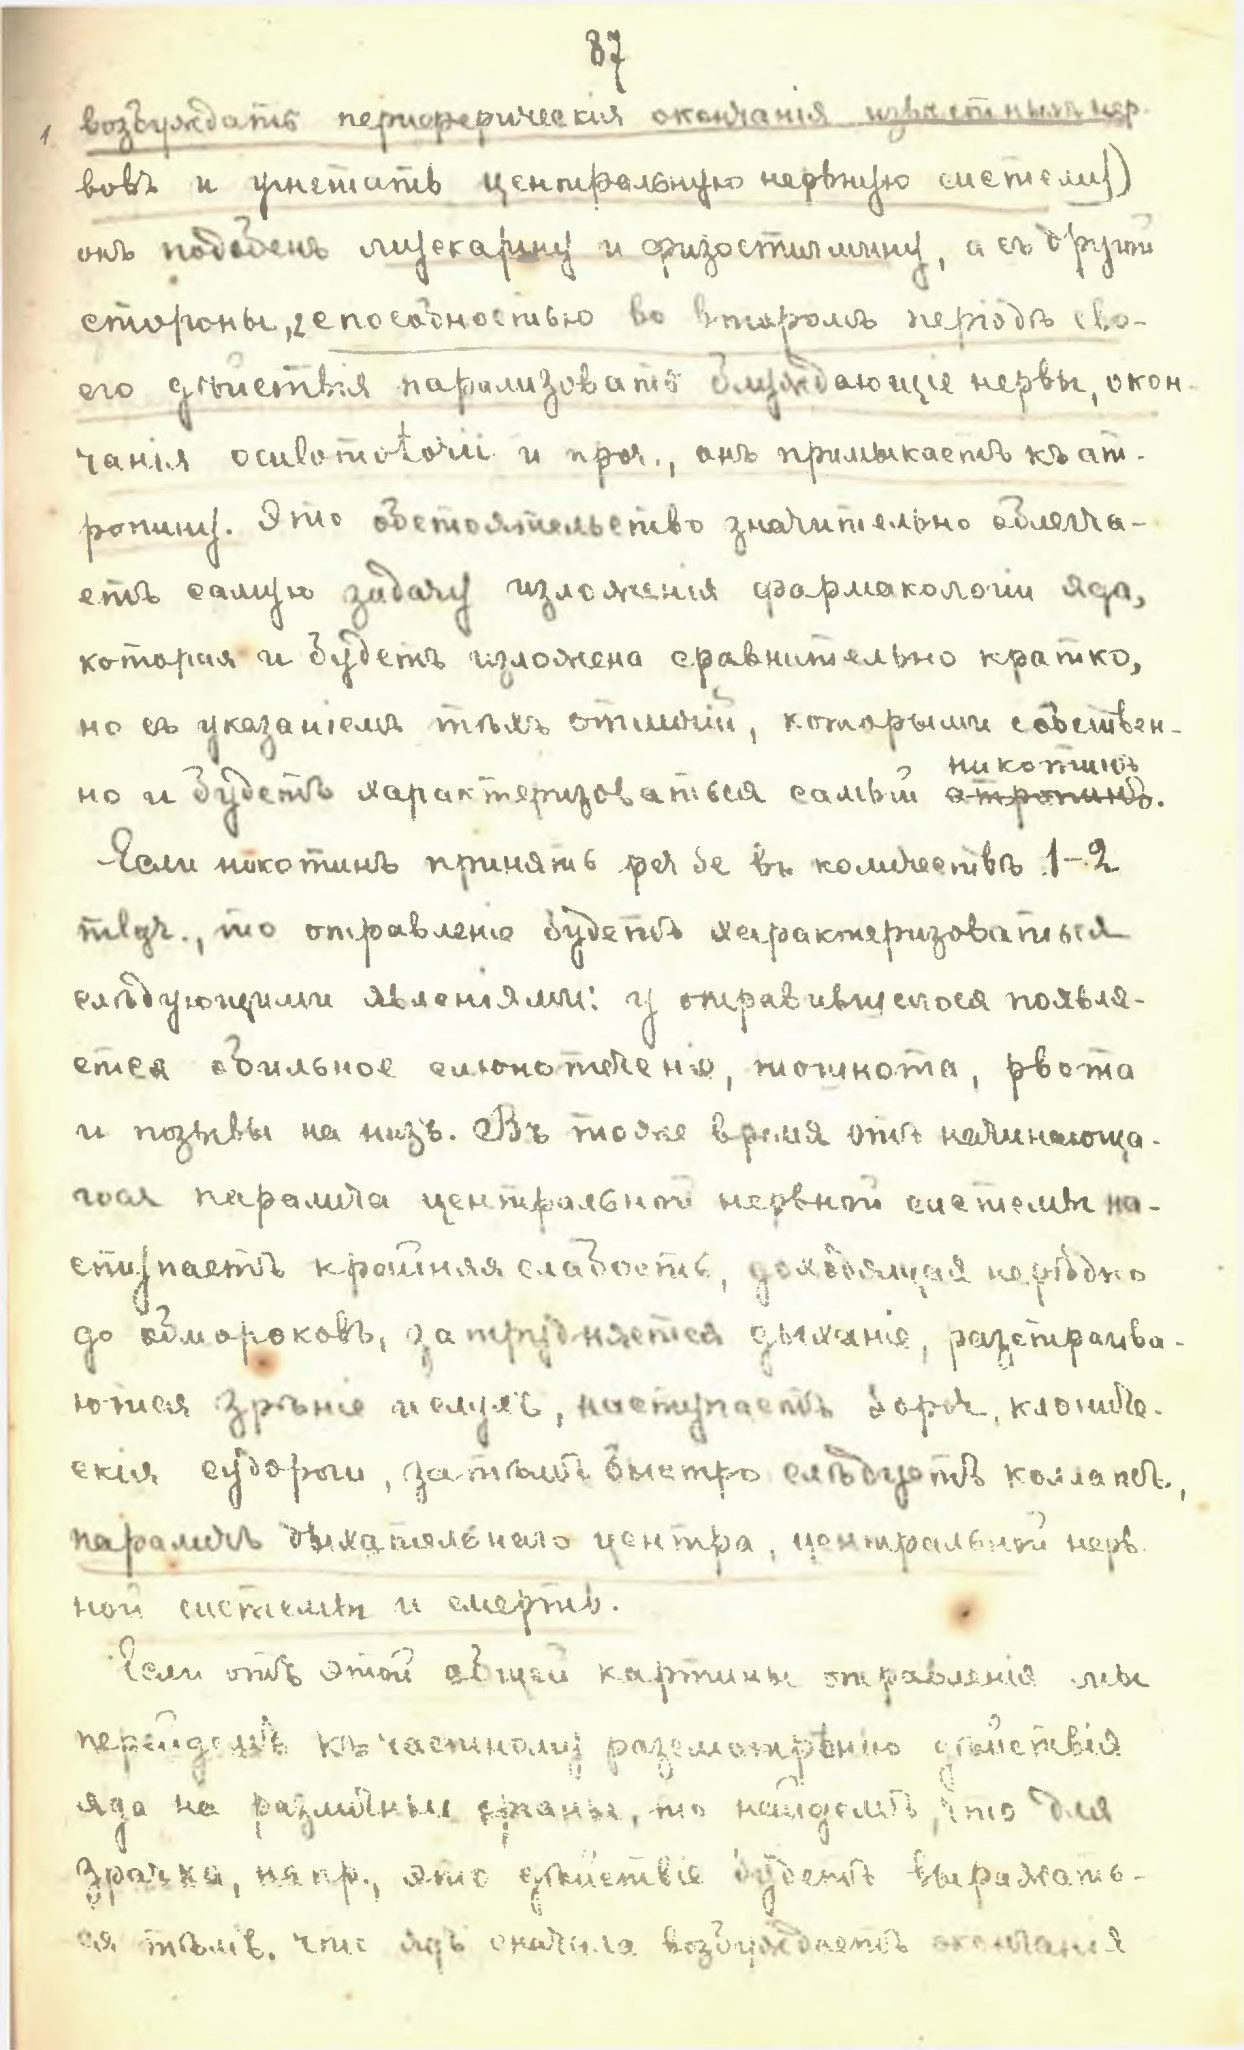 87
1. возбуждать периферическія окончанія извѣстныхъ нер-
вовъ и угнетать центральную нервную систему)
онъ подобенъ мускарину и физостигмину, а съ другой
стороны, 2 способностью во второмъ періодѣ сво-
его дѣйствія парализовать блуждающіе нервы, окон-
чанія oculomotorii и проч., онъ примыкаетъ къ ат-
ропину. Это обстоятельство значительно облегча-
етъ самую задачу изложенія фармакологіи яда,
которая и будетъ изложена сравнительно кратко,
но съ указаніемъ тѣхъ отличій, которыми собствен-
никотинъ
но и будетъ характеризоваться самый атропинъ.
Если никотинъ принять per os въ количествѣ 1-2
то отравленіе будетъ характеризоваться
слѣдующими явленіями: у отравившагося появля-
ется обильное слюнотеченіе, тошнота, рвота
и позывы на низъ. Въ тоже время отъ начинающа-
гося паралича центральной нервной системы на-
ступаетъ крайняя слабость, доходящая нерѣдко
до обмороковъ, затрудняется дыханіе, разстраива-
ются зрѣніе и слухъ, наступаетъ клониче-
скія судороги, затѣмъ быстро слѣдуетъ коллапсъ,
параличъ дыхательнаго центра, центральной нерв-
ной системы и смерть.
Если отъ этой общей картины отравленія мы
перейдемъ къ частному разсмотрѣнію дѣйствія
яда на различные органы, то найдемъ, что для
зрачка, напр., это дѣйствіе будетъ выражать-
ся тѣмъ, что ядъ сначала возбуждаетъ окончанія